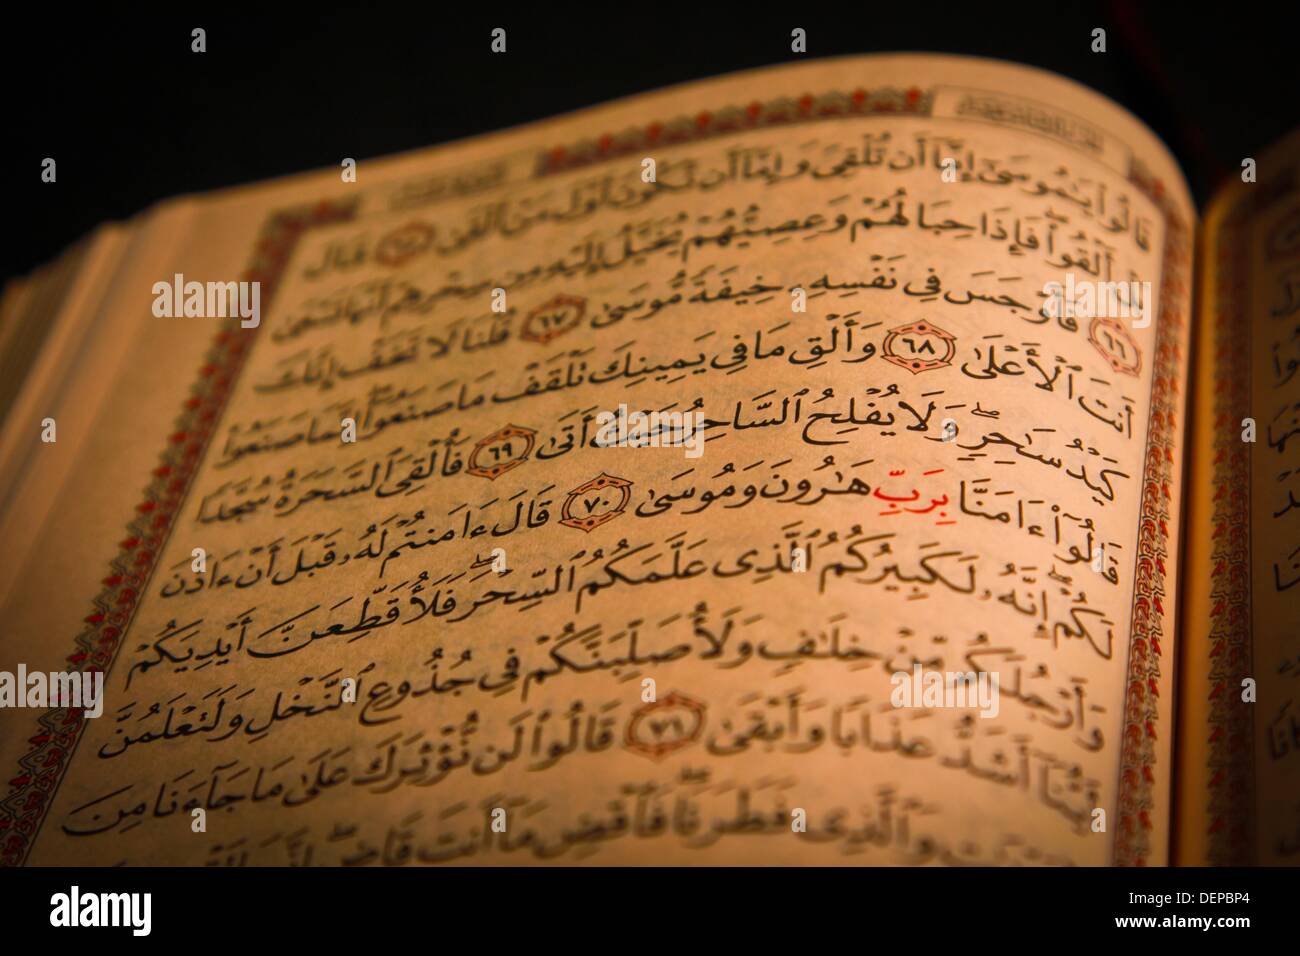 قَالُوا۟ يَٰمُوسَىٰٓ إِمَّآ أَن تُلْقِىَ وَإِمَّآ أَن نَّكُونَ أَوَّلَ مَنْ أَلْقَىٰ ٦٥ قَالَ
بَلْ أَلْقُوا۟ ۖ فَإِذَا حِبَالُهُمْ وَعِصِيُّهُمْ يُخَيَّلُ إِلَيْهِ مِن سِحْرِهِمْ أَنَّهَا تَسْعَىٰ
٦٦ فَأَوْجَسَ فِى نَفْسِهِۦ خِيفَةً مُّوسَىٰ ٦٧ قُلْنَا لَا تَخَفْ إِنَّكَ
أَنتَ ٱلْأَعْلَىٰ ٦٨ وَأَلْقِ مَا فِى يَمِينِكَ تَلْقَفْ مَا صَنَعُوٓا۟ ۖ إِنَّمَا صَنَعُوا۟
كَيْدُ سَٰحِرٍ ۖ وَلَا يُفْلِحُ ٱلسَّاحِرُ حَيْثُ أَتَىٰ ٦٩ فَأُلْقِىَ ٱلسَّحَرَةُ سُجَّدًا
قَالُوٓا۟ ءَامَنَّا بِرَبِّ هَٰرُونَ وَمُوسَىٰ ٧٠ قَالَ ءَامَنتُمْ لَهُۥ قَبْلَ أَنْ ءَاذَنَ
لَكُمْ ۖ إِنَّهُۥ لَكَبِيرُكُمُ ٱلَّذِى عَلَّمَكُمُ ٱلسِّحْرَ ۖ فَلَأُقَطِّعَنَّ أَيْدِيَكُمْ
وَأَرْجُلَكُم مِّنْ خِلَٰفٍ وَلَأُصَلِّبَنَّكُمْ فِى جُذُوعِ ٱلنَّخْلِ وَلَتَعْلَمُنَّ
أَيُّنَآ أَشَدُّ عَذَابًا وَأَبْقَىٰ ٧١ قَالُوا۟ لَن نُّؤْثِرَكَ عَلَىٰ مَا جَآءَنَا مِنَ
ٱلْبَيِّنَٰتِ وَٱلَّذِى فَطَرَنَا ۖ فَٱقْضِ مَآ أَنتَ قَاضٍ ۖ إِنَّمَا
alamy
alamy
alamy
alamy
Image ID: DEPBP4
www.alamy.com